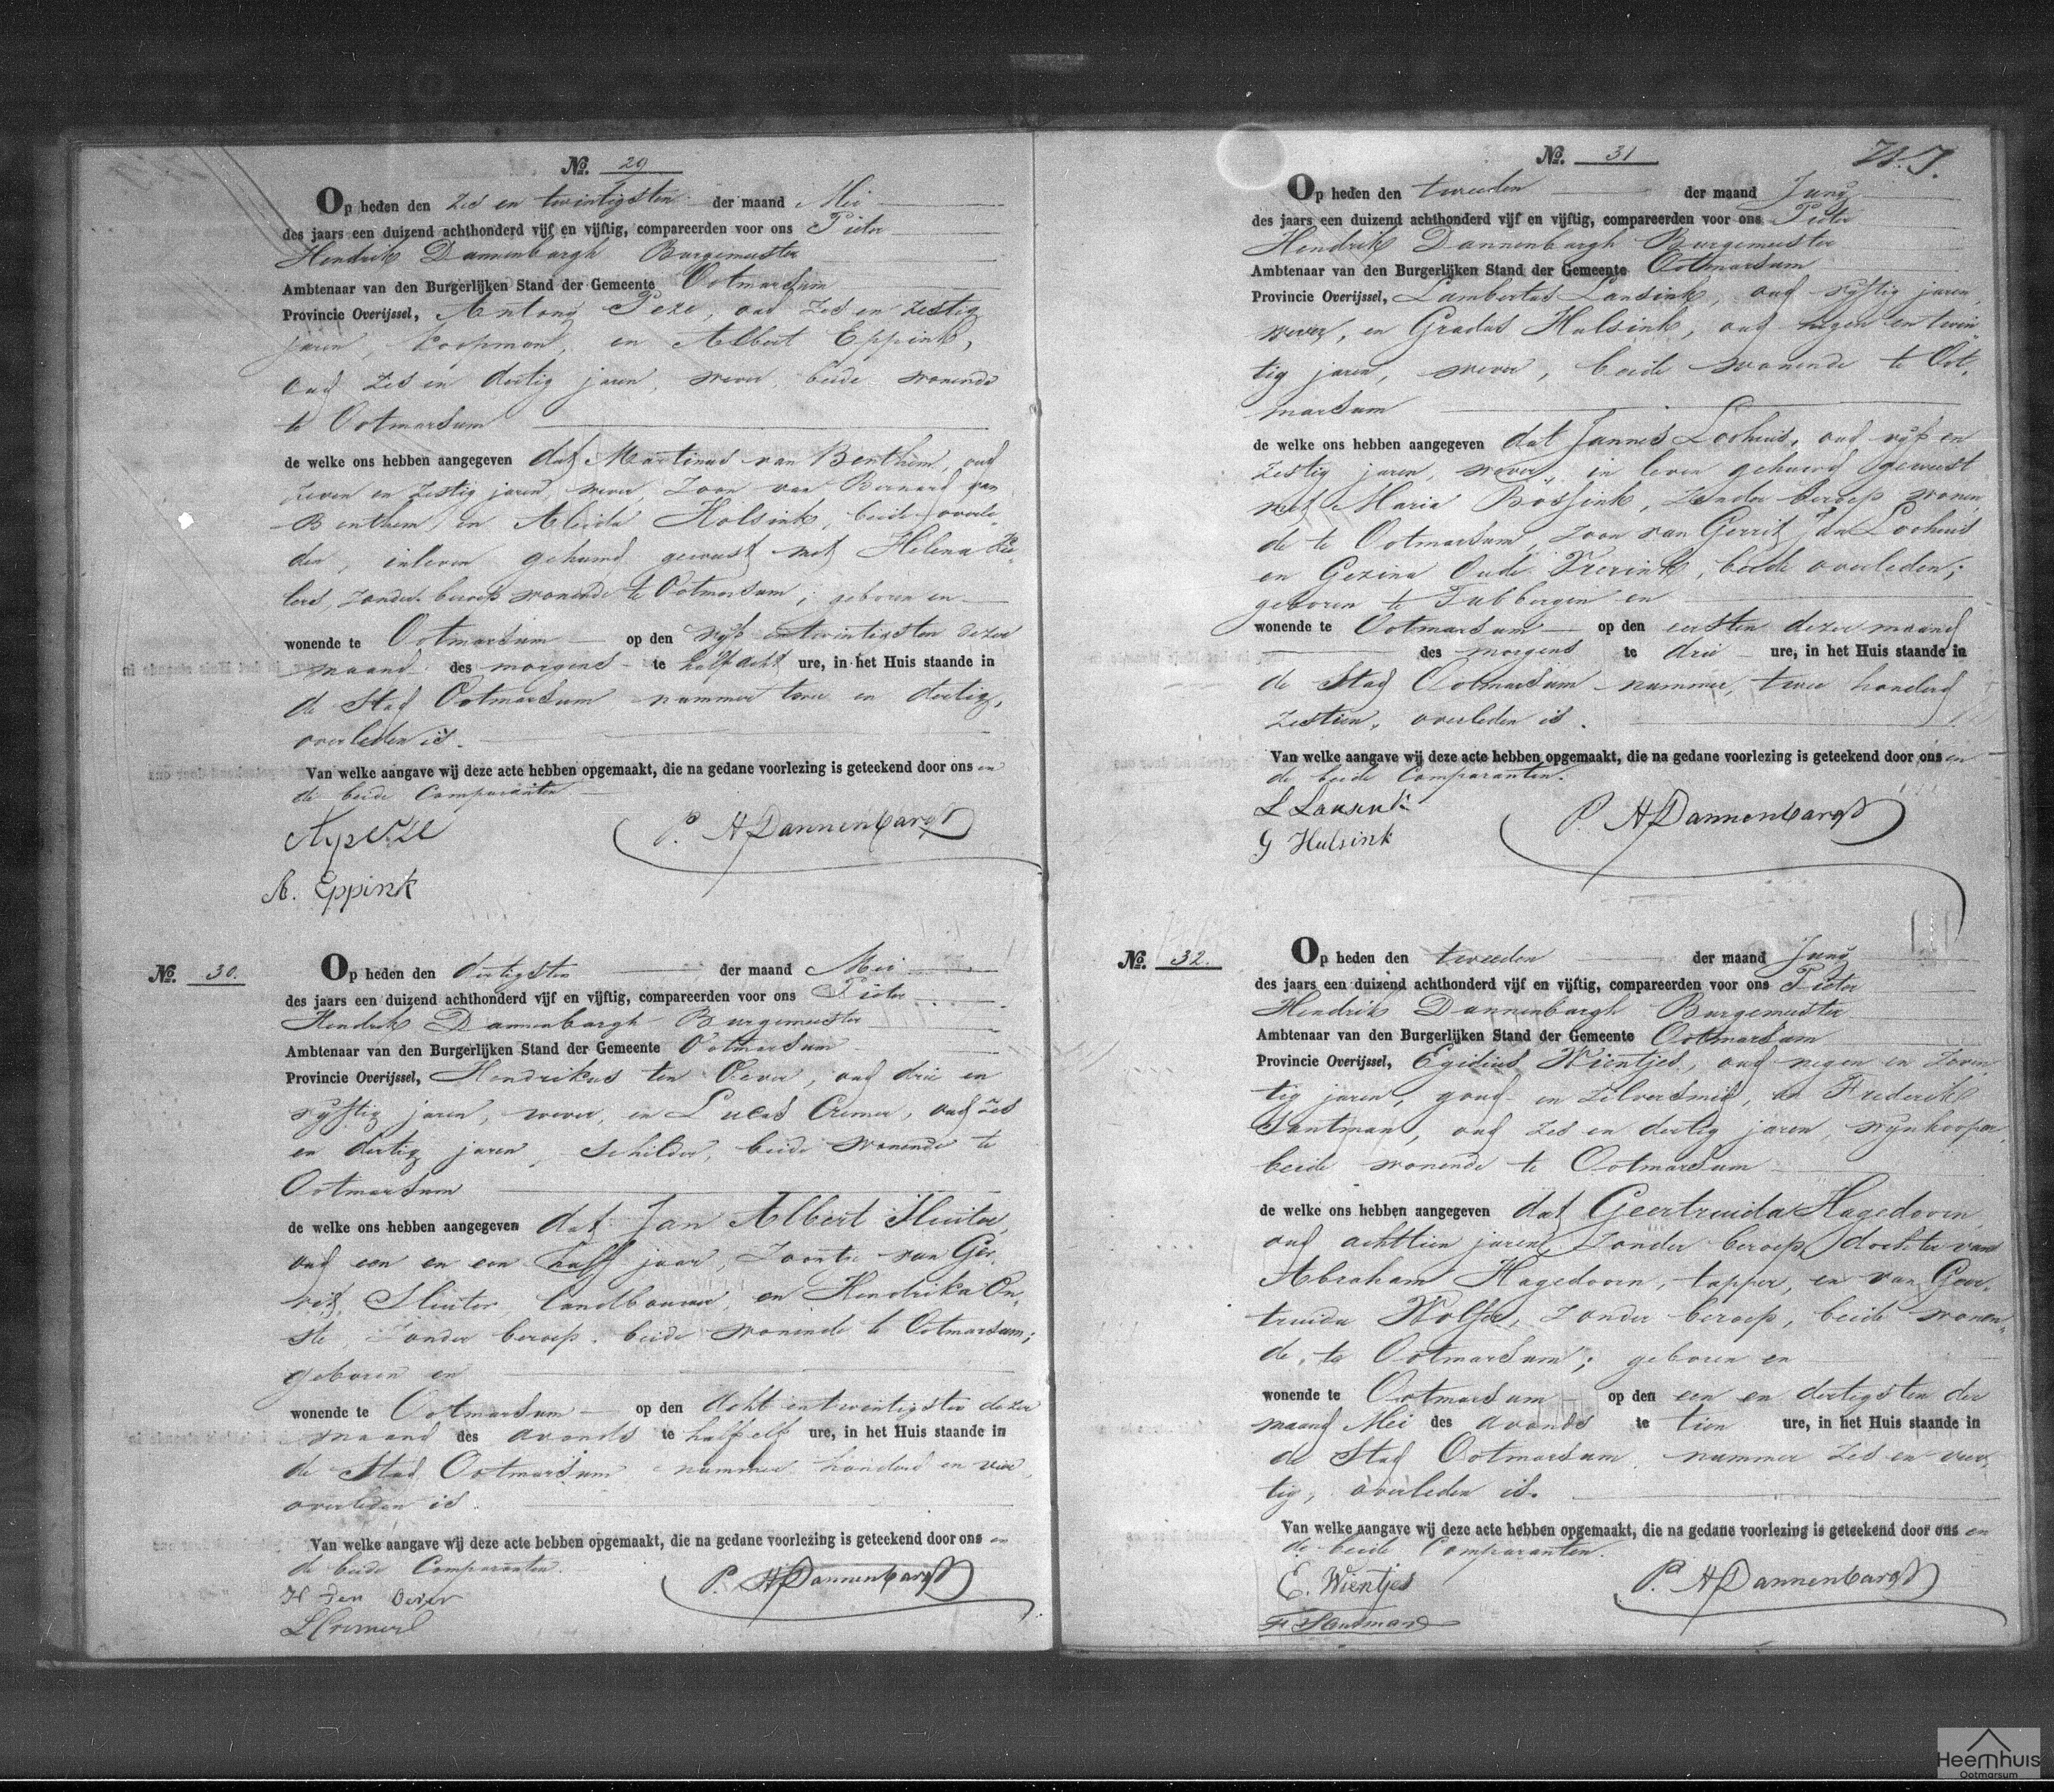 No. 29
Op heden den zes en twintigsten der maand Mei
des jaars een duizend achthonderd vijf en vijftig, compareerden voor ons Pieter
Hendrik Dannenbargh Burgemeester
Ambtenaar van den Burgerlijken Stand der Gemeente Ootmarsum
Provincie Overijssel, Antony Peze, oud zes en zestig
jaren, koopman, en Albert Eppink,
oud zes en dertig jaren, wever, beide wonende
te Ootmarsum
de welke ons hebben aangegeven dat Martinus van Benthem, oud
zeven en zestig jaren, wever, zoon van Bernard van
Benthem en Aleida Holsink, beide overle-
den, in leven gehuwd geweest met Helena
lers, zonder beroep wonende te Ootmarsum; geboren en
wonende te Ootmarsum op den vijf en twintigsten dezer
maand des morgens te half acht ure, in het Huis staande in
de Stad Ootmarsum nummer twee en dertig,
overleden is.
Van welke aangave wij deze acte hebben opgemaakt, die na gedane voorlezing is geteekend door ons en
de beide Comparanten.
P. H Dannenbargh
A. Eppink
No. 30.
Op heden den dertigsten der maand Mei
des jaars een duizend achthonderd vijf en vijftig, compareerden voor ons Pieter
Hendrik Dannenbargh Burgemeester
Ambtenaar van den Burgerlijken Stand der Gemeente Ootmarsum
Provincie Overijssel, Hendrikus ten Oever, oud drie en
vijftig jaren, wever, en Lucas Cremer, oud zes
en dertig jaren, schilder, beide wonende te
Ootmarsum
de welke ons hebben aangegeven dat Jan Albert Sluiter,
oud een en een half jaar, zoontje van Ger-
rit Sluiter landbouwer, en Hendrika On-
ste, zonder beroep, beide wonende te Ootmarsum;
geboren en
wonende te Ootmarsum op den acht en twintigsten dezer
maand des avonds te half elf ure, in het Huis staande in
de Stad Ootmarsum nummer honderd en vier,
overleden is.
Van welke aangave wij deze acte hebben opgemaakt, die na gedane voorlezing is geteekend door ons en
de beide Comparanten.
H Ten Oever
P. H Dannenbargh
L Cremer
No. 31
Op heden den tweeden der maand Juny
des jaars een duizend achthonderd vijf en vijftig, compareerden voor ons Pieter
Hendrik Dannenbargh Burgemeester
Ambtenaar van den Burgerlijken Stand der Gemeente Ootmarsum
Provincie Overijssel, Lambertus Lansink, oud vijftig jaren,
wever, en Gradus Hulsink, oud negen en twin
tig jaren, wever, beide wonende te Oot-
marsum
de welke ons hebben aangegeven dat Jannes Loohuis, oud vijf en
zestig jaren, wever, in leven gehuwd geweest
met Maria Bössink, zonder beroep wonen
de te Ootmarsum, zoon van Gerrit Jan Loohuis
en Gezina Oude Vrerink, beide overleden;
geboren te Tubbergen en
wonende te Ootmarsum op den eersten dezer maand
des morgens te drie ure, in het Huis staande in
de Stad Ootmarsum nummer, twee honderd
zestien, overleden is.
Van welke aangave wij deze acte hebben opgemaakt, die na gedane voorlezing is geteekend door ons en
de beide Comparanten.
L Lansink
P. H Dannenbargh
G Hulsink
No. 32.
Op heden den tweeden der maand Juny
des jaars een duizend achthonderd vijf en vijftig, compareerden voor ons Pieter
Hendrik Dannenbargh Burgemeester
Ambtenaar van den Burgerlijken Stand der Gemeente Ootmarsum
Provincie Overijssel, Egidius Wientjes, oud negen en zeven
tig jaren, goud- en zilversmid, en Frederik
Santman, oud zes en dertig jaren, wijnkooper,
beide wonende te Ootmarsum
de welke ons hebben aangegeven dat Geertruida Hagedoorn
oud achttien jaren, zonder beroep, dochter van
Abraham Hagedoorn, tapper, en van Geer-
truida Wolfer, zonder beroep, beide wonen-
de, te Ootmarsum; geboren en
wonende te Ootmarsum op den een en dertigsten der
maand Mei des avonds te tien ure, in het Huis staande in
de Stad Ootmarsum, nummer zes en veer
tig, overleden is.
Van welke aangave wij deze acte hebben opgemaakt, die na gedane voorlezing is geteekend door ons en
de beide Comparanten.
E. Wientjes
P. H Dannenbargh
F Santman
Heemhuis
Ootmarsum